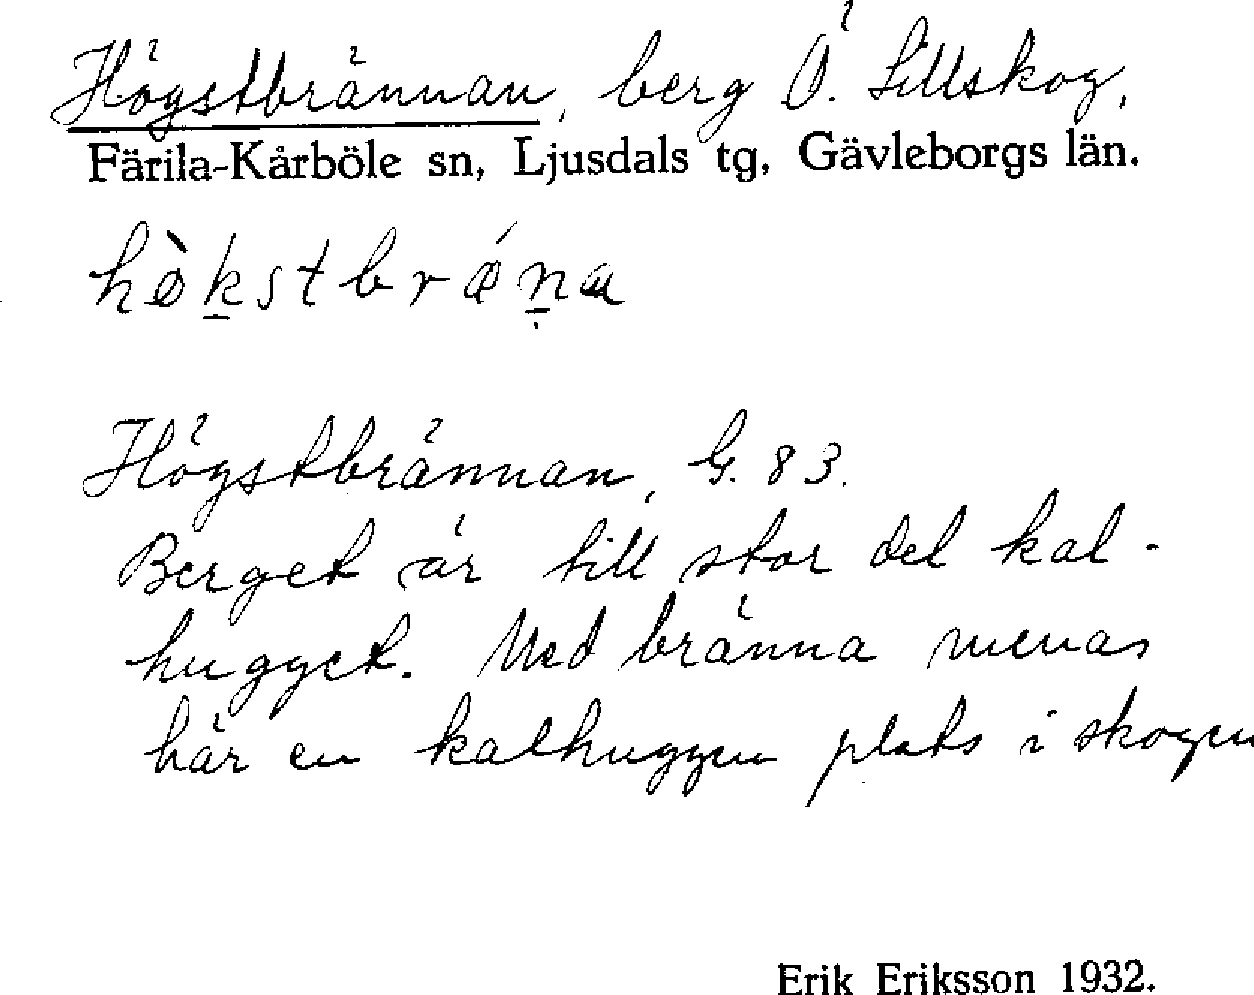 Högstbrännan, berg Ö. Sillskog,
Färila-Kårböle sn, Ljusdals tg, Gävleborgs län.
hø̀k̲stbrǽṇ̲a
Högstbrännan, G. 83.
Berget är till stor del kal-
hugget. Med bränna menas
här en kalhuggen plats i skogen
Erik Eriksson 1932.